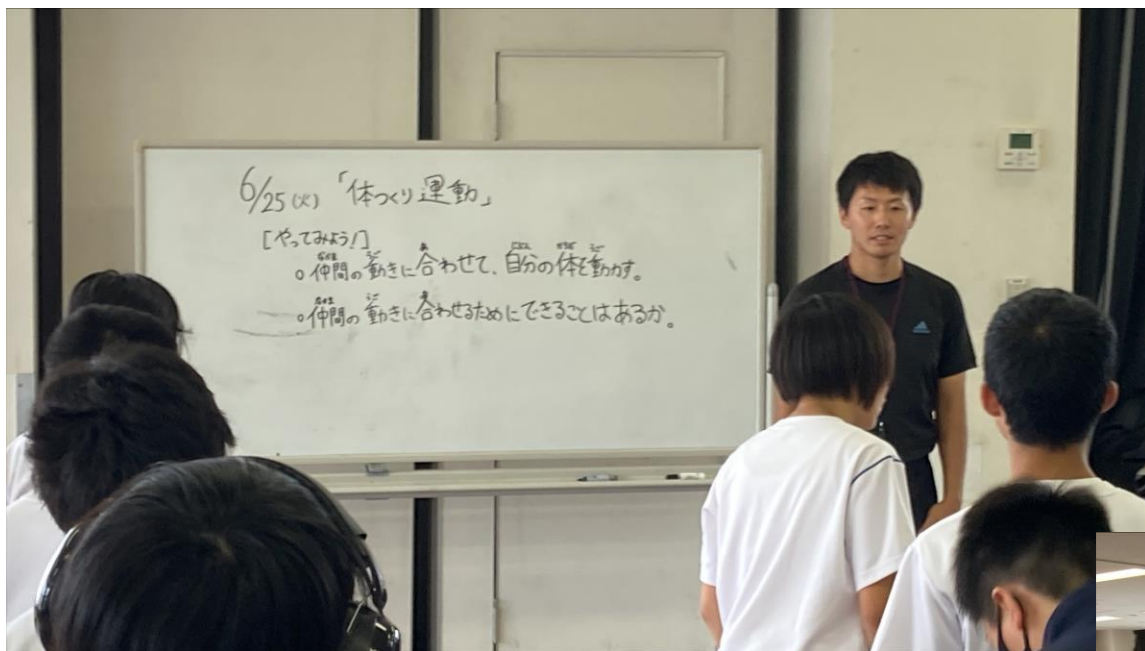 6/25(火)「体つくり運動」
[やってみよう!]
○仲間の動きに合わせて、自分の体を動かす。
○仲間の動きに合わせるためにできることはあるか。